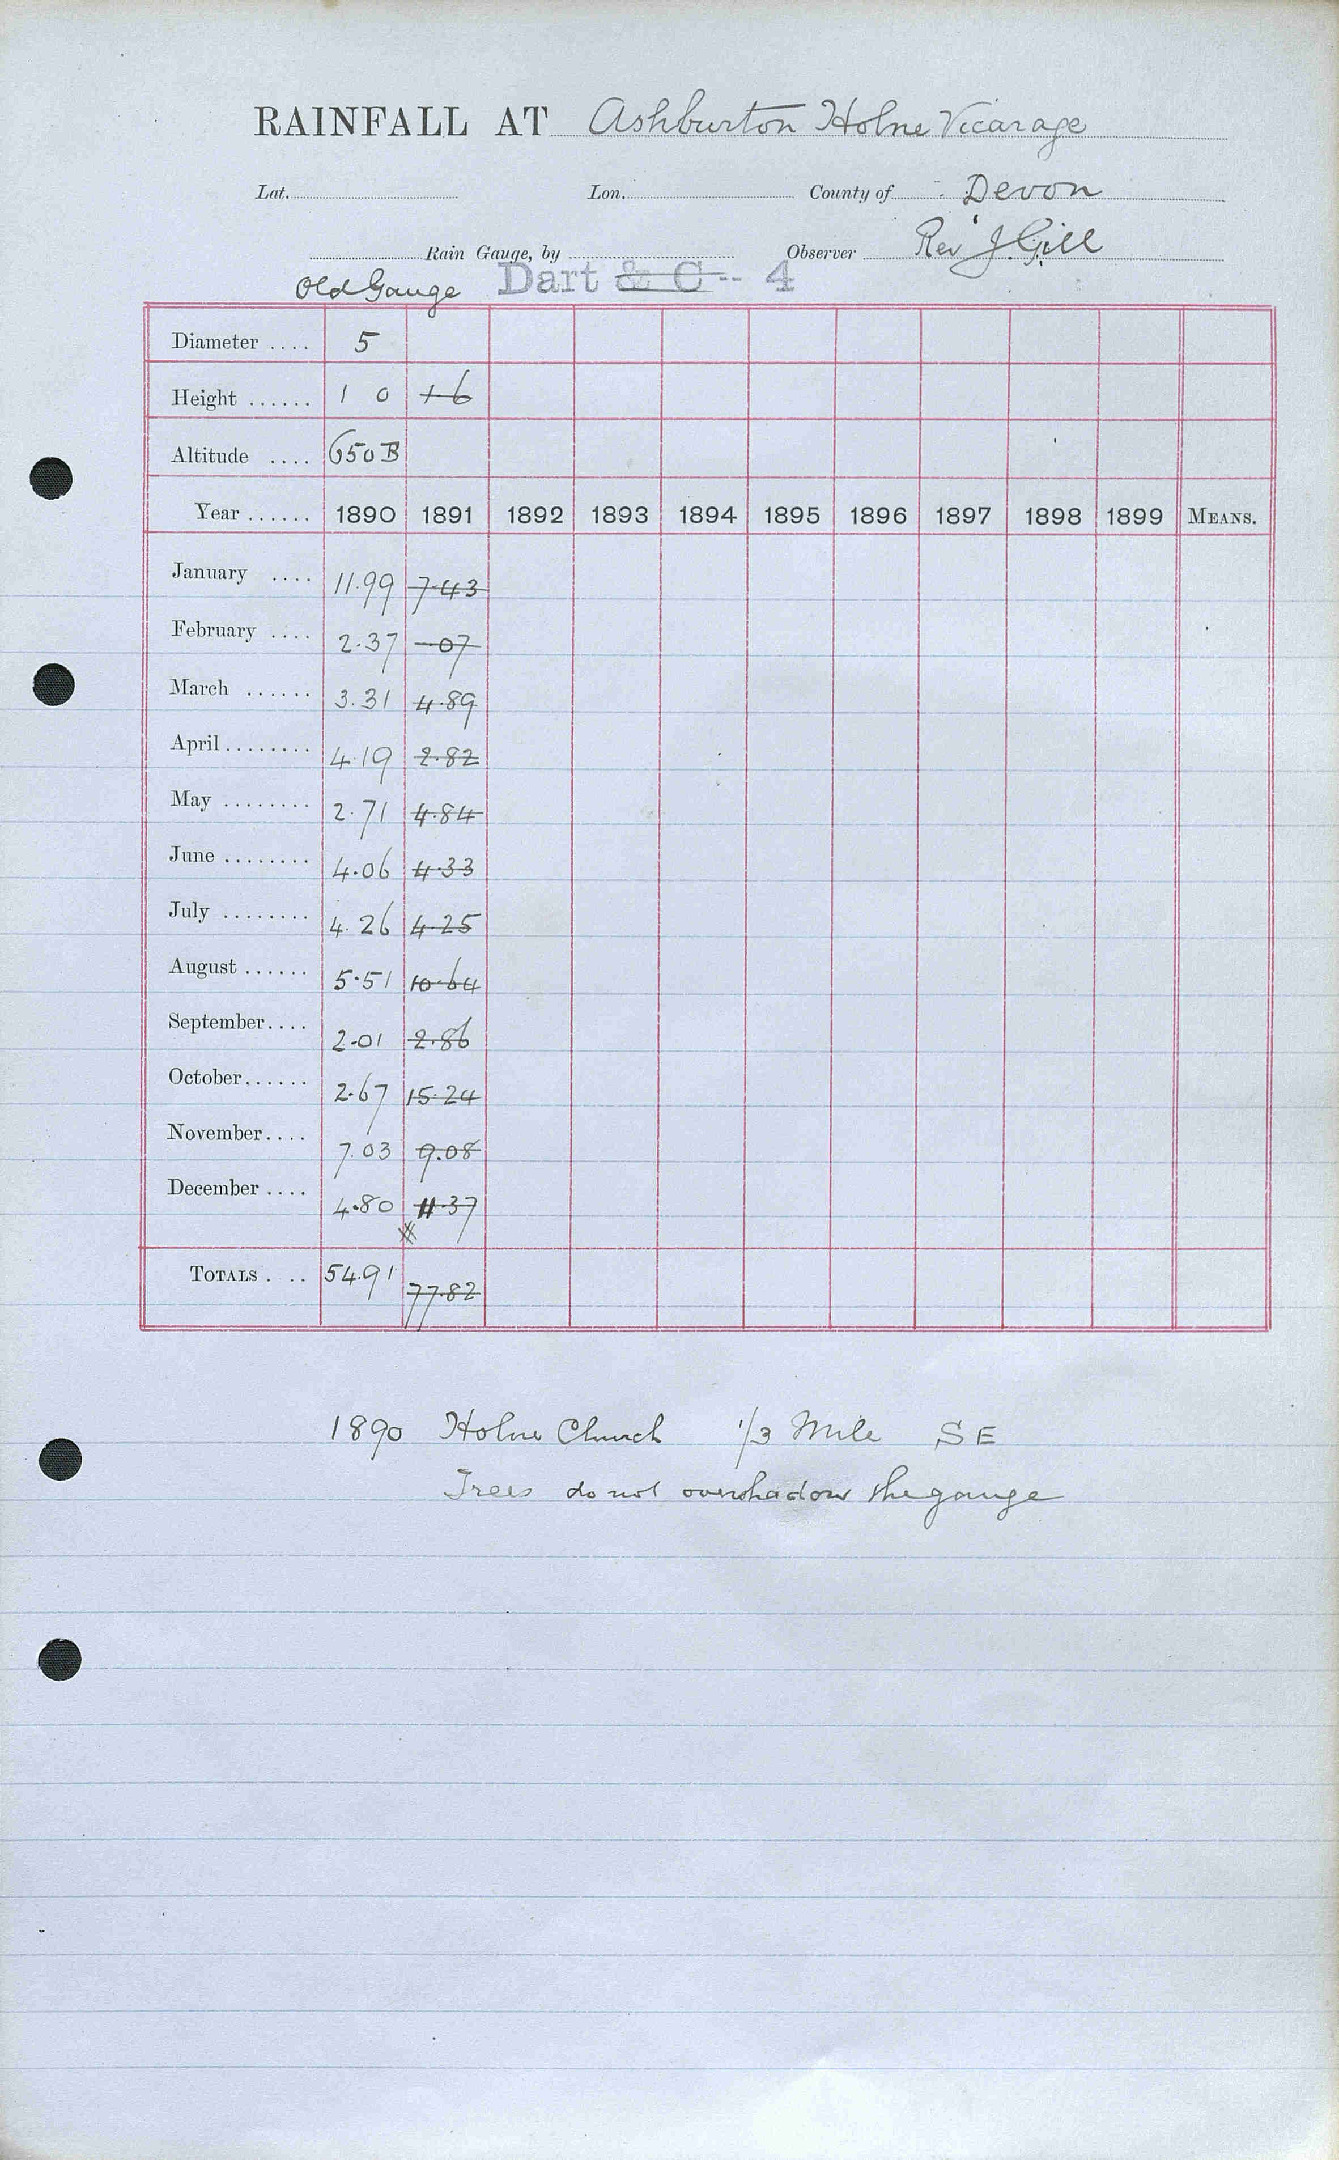 RAINFALL AT Ashburton Holne Vicarage
Lat. Lon. County of Devon
Rain Gauge, by Observer Rev J. Gill
Old Gauge Dart & C -- 4
Diameter .... 5
Height ...... 1 0 1 6
Altitude .... 650 B
Year ...... 1890 1891 1892 1893 1894 1895 1896 1897 1898 1899 MEANS.
January .... 11.99 7.43
February .... 2.37 -07
March ...... 3.31 4.89
April ........ 4.19 2.82
May ........ 2.71 4.84
June ........ 4.06 4.33
July ........ 4.26 4.25
August ...... 5.51 10.64
September .... 2.01 2.86
October ...... 2.67 15.24
November .... 7.03 9.08
December .... 4.80 11.37
TOTALS . .. 54.91 77.82
1890 Holne Church 1/3 Mile SE
Trees do not overshadow the gauge